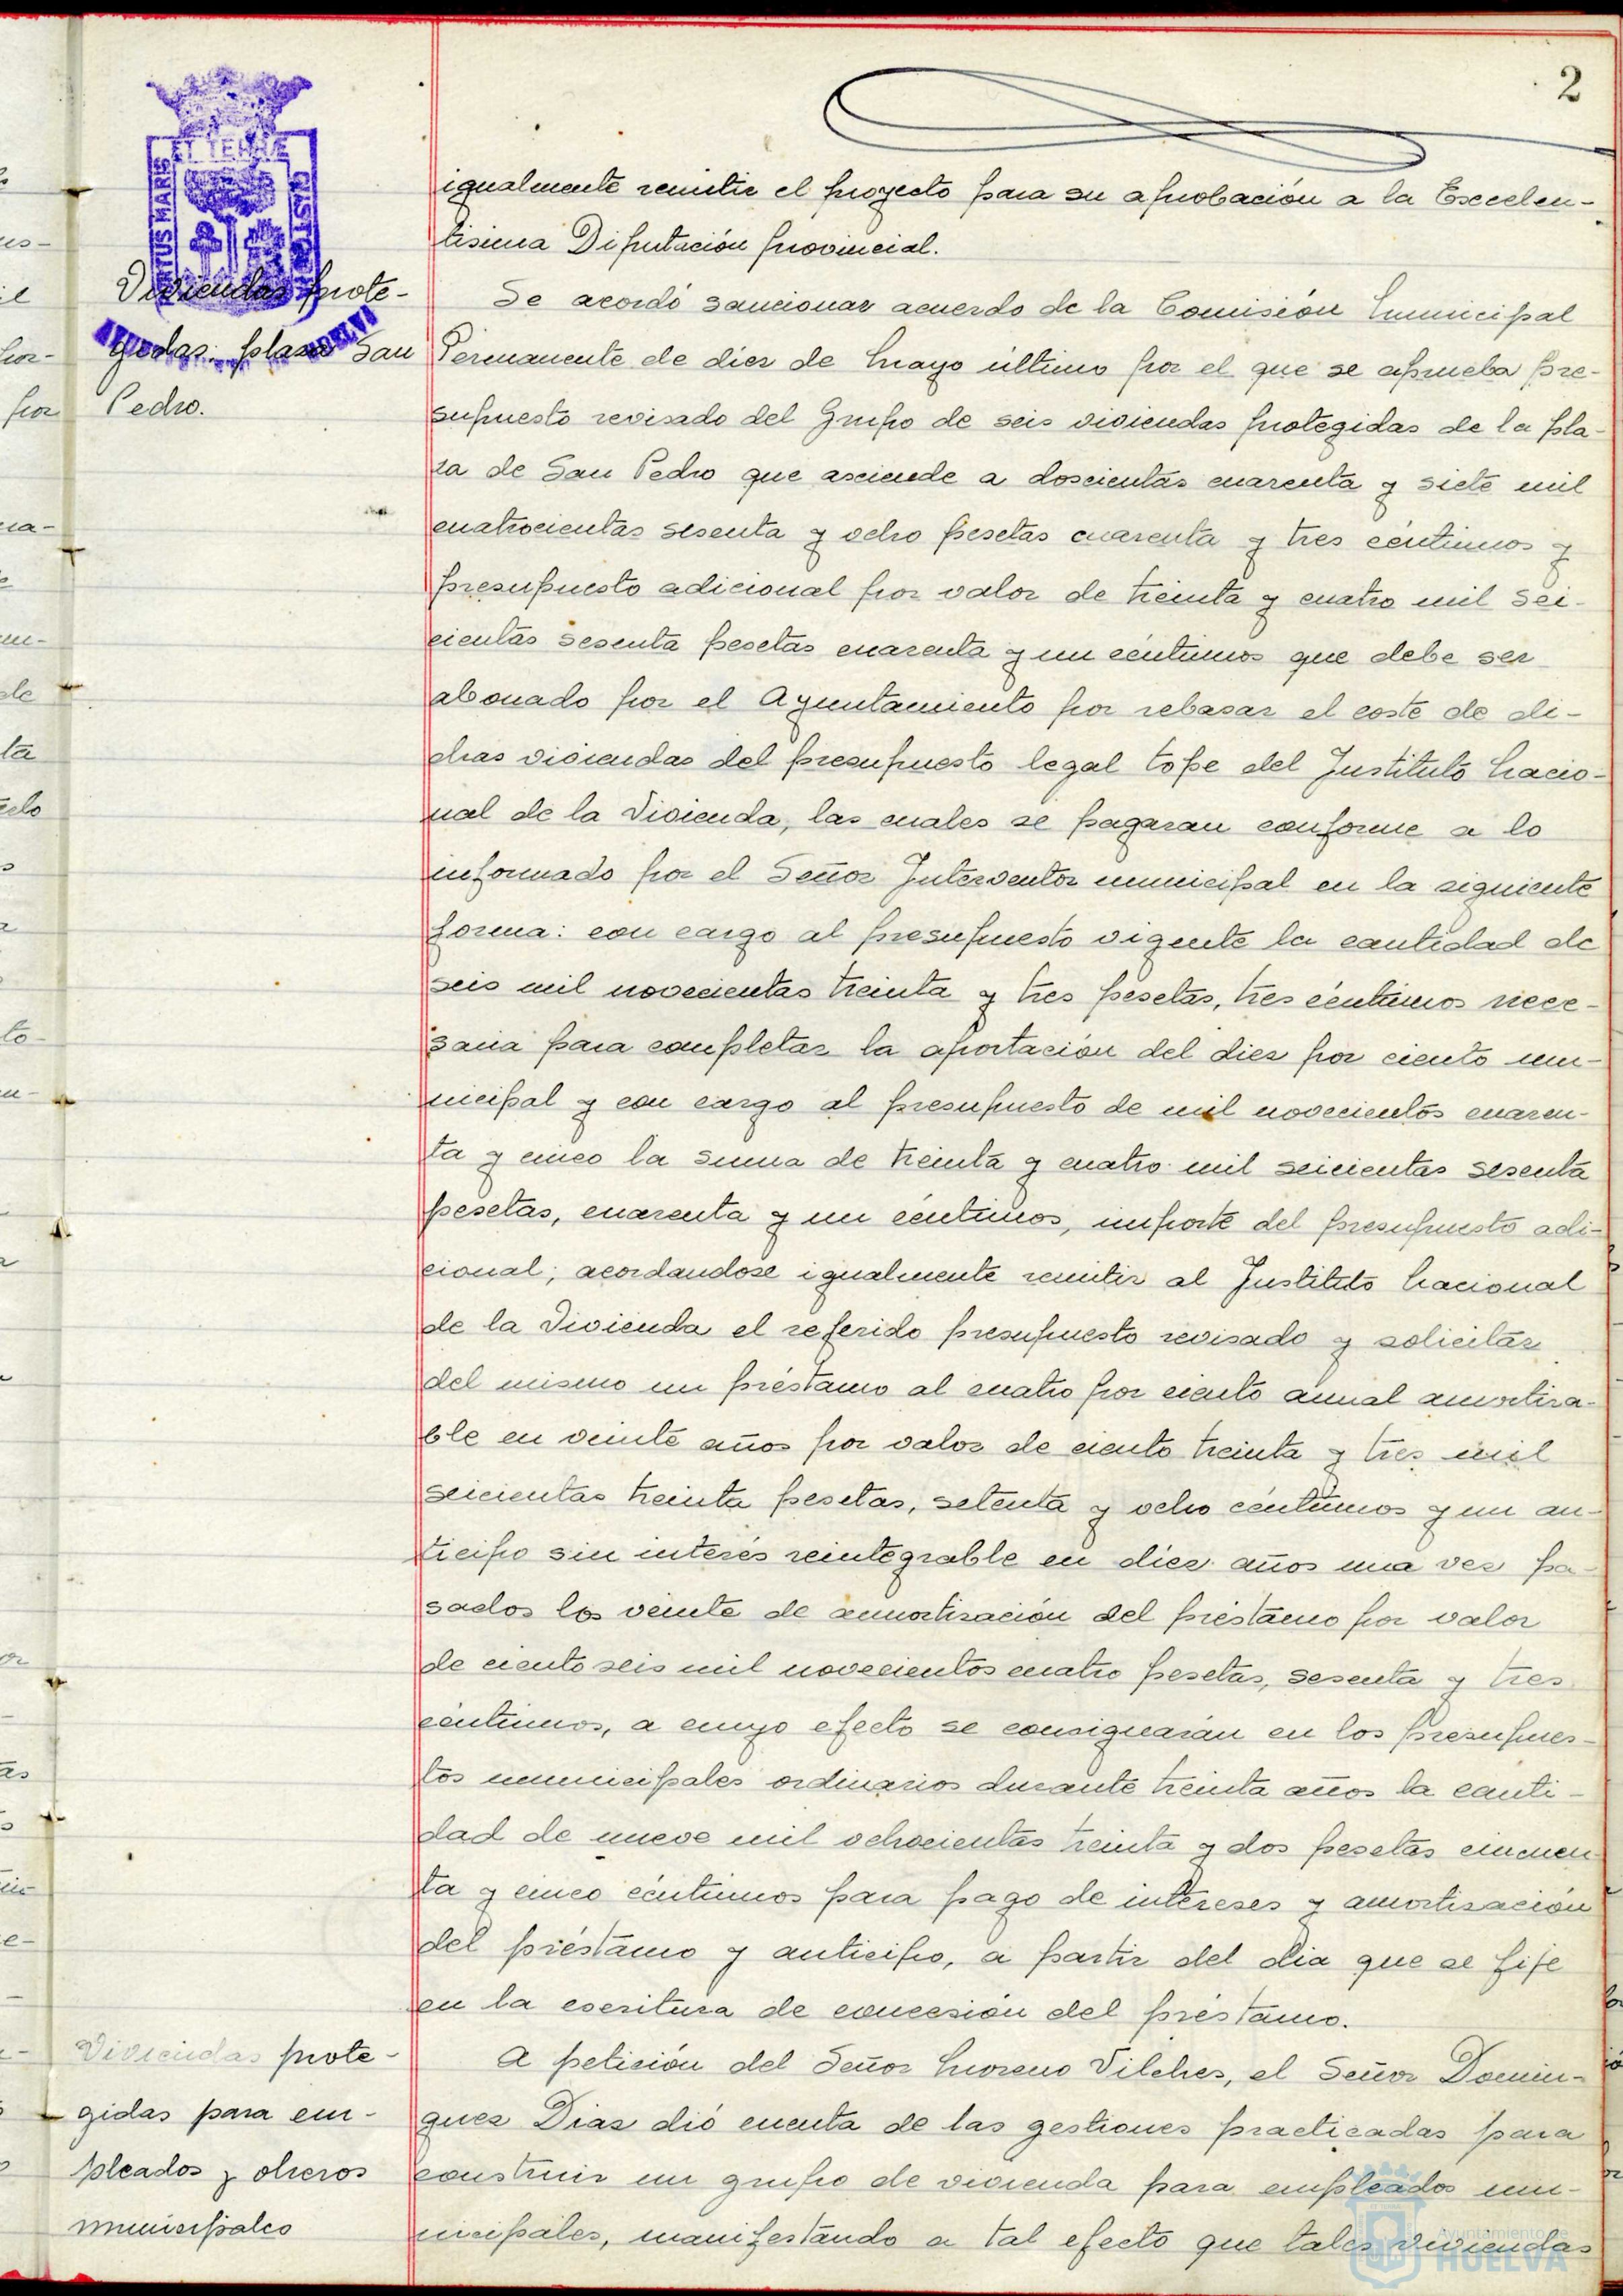 2
PORTUS MARIS
ET TERRÆ
CUSTODIA
HUELVA
igualmente remitir el proyecto para su aprobación a la Excelen-
tisima Diputación provincial.
Viviendas prote-
gidas: plaza San
Pedro.
Se acordó sancionar acuerdo de la Comisión Municipal
Permanente de diez de Mayo último por el que se aprueba pre-
supuesto revisado del Grupo de seis viviendas protegidas de la pla-
za de San Pedro que asciende a doscientas cuarenta y siete mil
cuatrocientas sesenta y ocho pesetas cuarenta y tres céntimos y
presupuesto adicional por valor de treinta y cuatro mil sei-
cientas sesenta pesetas cuarenta y un céntimos que debe ser
abonado por el Ayuntamiento por rebasar el coste de di-
chas viviendas del presupuesto legal tope del Instituto Nacio-
nal de la Vivienda, las cuales se pagaran conforme a lo
informado por el Señor Interventor municipal en la siguiente
forma: con cargo al presupuesto vigente la cantidad de
seis mil novecientas treinta y tres pesetas, tres céntimos nece-
saria para completar la aportación del diez por ciento mu-
nicipal y con cargo al presupuesto de mil novecientos cuaren-
ta y cinco la suma de treinta y cuatro mil seicientas sesenta
pesetas, cuarenta y un céntimos, importe del presupuesto adi-
cional; acordandose igualmente remitir al Instituto Nacional
de la Vivienda el referido presupuesto revisado y solicitar
del mismo un préstamo al cuatro por ciento anual amortiza-
ble en veinte años por valor de ciento treinta y tres mil
seicientas treinta pesetas, setenta y ocho céntimos y un an-
ticipo sin interés reintegrable en diez años una vez pa-
sados los veinte de amortización del préstamo por valor
de ciento seis mil novecientos cuatro pesetas, sesenta y tres
céntimos, a cuyo efecto se consignarán en los presupues-
tos municipales ordinarios durante treinta años la canti-
dad de nueve mil ochocientas treinta y dos pesetas cincuen
ta y cinco céntimos para pago de intereses y amortización
del préstamo y anticipo, a partir del dia que se fije
en la escritura de concesión del préstamo.
Viviendas prote-
gidas para em-
pleados y obreros
municipales
A petición del Señor Moreno Vilches, el Señor Domin-
guez Diaz dió cuenta de las gestiones practicadas para
construir un grupo de vivienda para empleados mu-
nicipales, manifestando a tal efecto que tales viviendas
Ayuntamiento de
HUELVA